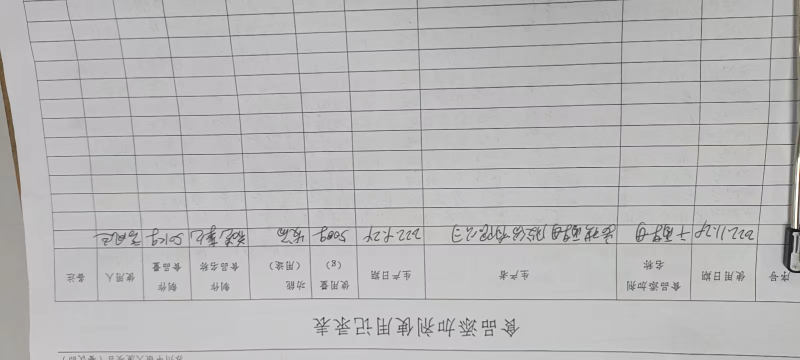 食品添加剂使用记录表
序号 使用日期 食品添加剂名称 生产者 生产日期 使用量(g) 功能(用途) 制作食品名称 制作食品量 使用人 备注
2022.11.28 干酵母 安琪酵母股份有限公司 500g 发面 50kg